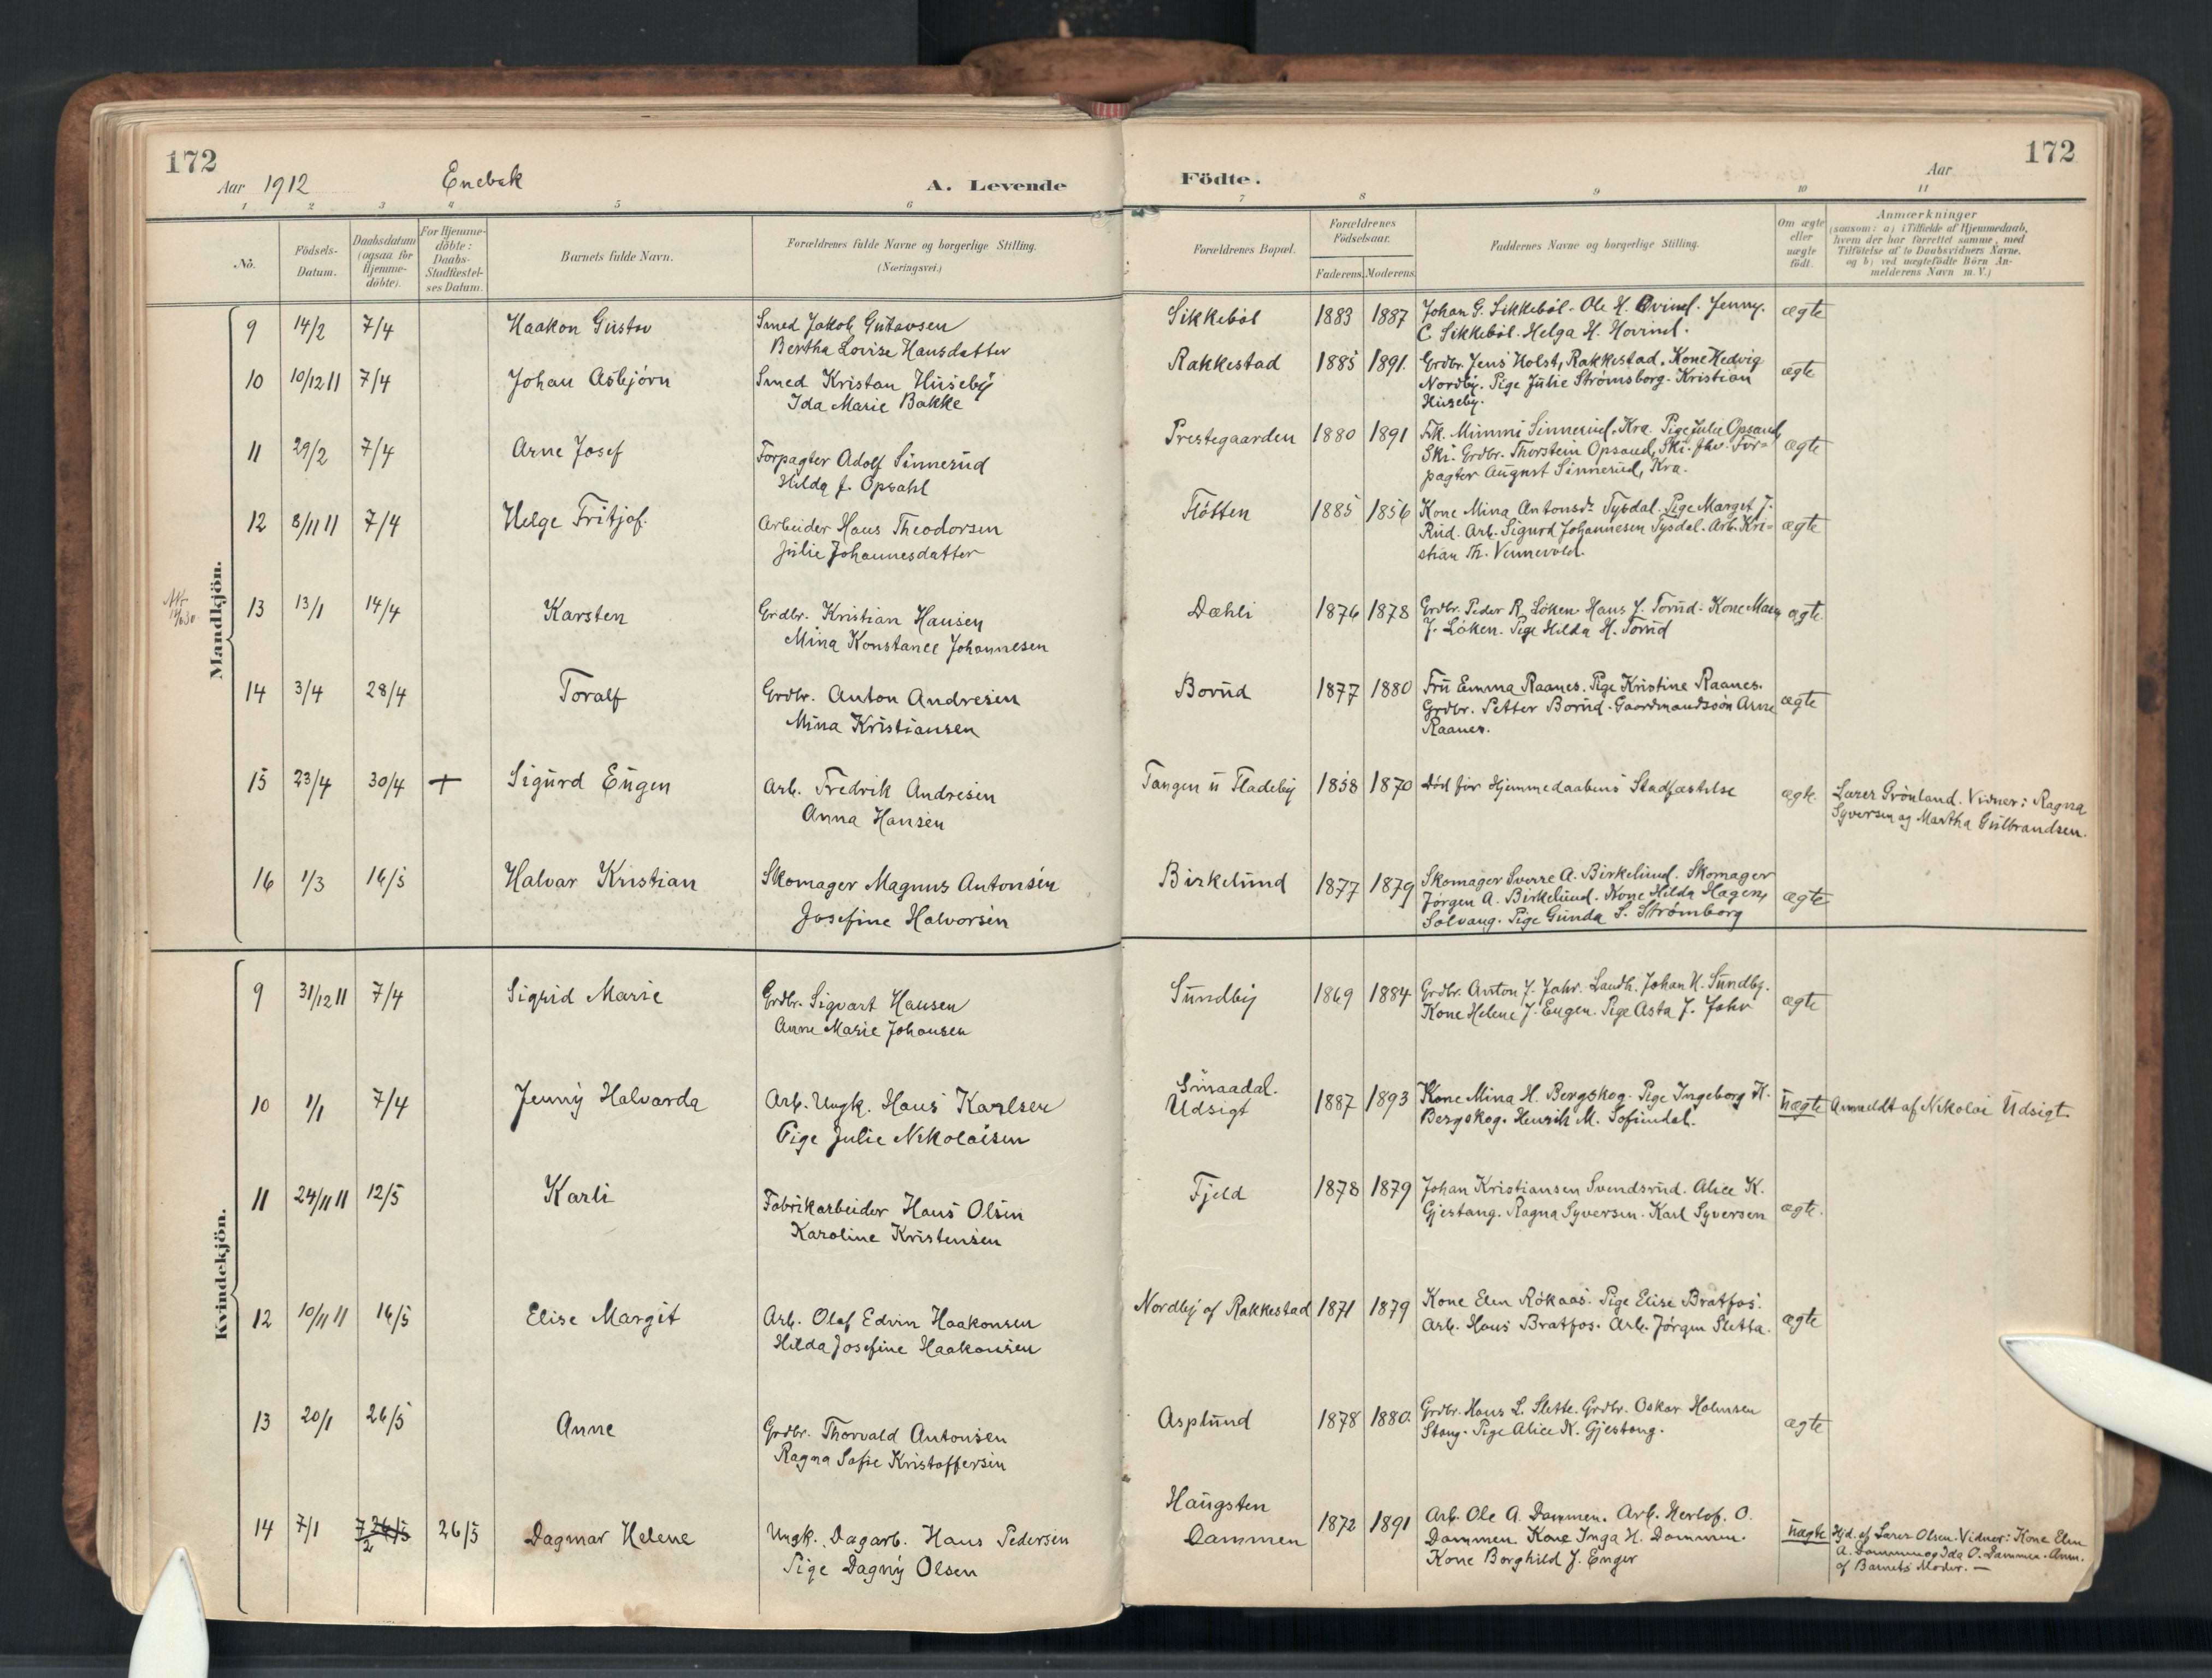 172
Aar 1912
Enebak
A. Levende
1 2 3 4 5 6
Nô.
Födsels-Datum.
Daabsdatum (ogsaa for Hjemme-döbte).
For Hjemme-döbte: Daabs-Stadfæstel-ses Datum.
Barnets fulde Navn.
Forældrenes fulde Navne og borgerlige Stilling.
(Næringsvei.)
Mandkjön.
9 14/2 7/4 Haakon Gustav Smed Jakob Gustavsen
Bertha Lovise Hansdatter
10 10/12 11 7/4 Johan Asbjörn Smed Kristan Huseby
Ida Marie Bakke
11 29/2 7/4 Arne Josef Forpagter Adolf Sinnerud
Hilda J. Opsahl
12 8/11 11 7/4 Helge Fritjof. Arbeider Hans Theodorsen
Julie Johannesdatter
13 13/1 14/4 Karsten Grdbr. Kristian Hansen
Mina Konstance Johannesen
14 3/4 28/4 Toralf Grdbr. Anton Andresen
Mina Kristiansen
15 23/4 30/4 + Sigurd Eugen Arb. Fredrik Andresen
Anna Hansen
16 1/3 16/5 Halvar Kristian Skomager Magnus Antonsen
Josefine Halvorsen
Kvindekjön.
9 31/12 11 7/4 Sigrid Marie Grdbr. Sigvart Hansen
Anne Marie Johansen
10 1/1 7/4 Jenny Halvarda Arb. Ungk. Hans Karlsen
Pige Julie Nikolaisen
11 24/11 11 12/5 Karli Fabrikarbeider Hans Olsen
Karoline Kristensen
12 10/11 11 16/5 Elise Margit Arb. Olaf Edvin Haakonsen
Hilda Josefine Haakonsen
13 20/1 26/5 Anne Grdbr. Thorvald Antonsen
Ragna Sofie Kristoffersen
14 7/1 7/2 26/5 26/5 Dagmar Helene Ungk. Dagarb. Hans Pedersen
Pige Dagny Olsen
Födte.
Aar
172
7 8 9 10 11
Forældrenes Bopæl.
Forældrenes Födselsaar.
Faderens. Moderens.
Faddernes Navne og borgerlige Stilling.
Om ægte eller uægte födt.
Anmærkninger
(saasom: a) i Tilfælde af Hjemmedaab,
hvem der har forrettet samme, med
Tilföielse af to Daabsvidners Navne.
og b) ved uægtefödte Börn An-
melderens Navn m. V.)
Sikkeböl 1883 1887 Johan G. Sikkeböl. Ole H. Hvind. Jenny. ægte
C Sikkeböl. Helga H. Hovind.
Rakkestad 1885 1891. Grdbr. Jens Holst, Rakkestad. Kone Hedvig ægte
Nordby. Pige Julie Strømsborg. Kristian
Huseby.
Prestegaarden 1880 1891 Frk. Mimmi Sinnerud, Kra. Pige Julie Opsand, ægte
Ski. Grdbr. Thorstein Opsand, Ski. fhv. For=
pagter August Sinnerud, Kra.
Fløtten 1885 1856 Kone Mina Antonsdr. Tysdal. Pige Margit J. ægte
Rud. Arb. Sigurd Johannesen Tysdal. Arb. Kri=
stian Th. Vennevold.
Dæhli 1876 1878 Grdbr. Peder R. Løken. Hans J. Torud. Kone Maren ægte.
J. Løken. Pige Hilda H. Torud
Borud 1877 1880 Fru Emma Raanes. Pige Kristine Raanes. ægte
Grdbr. Petter Borud. Gaardmandssøn Arne
Raanes.
Tangen u Fladeby 1858 1870 Död för Hjemmedaabens Stadfæstelse ægte. Lærer Grönland. Vidner: Ragna
Syversen og Martha Gulbrandsen.
Birkelund 1877 1879 Skomager Sverre A. Birkelund. Skomager ægte
Jørgen A. Birkelund. Kone Hilda Hagen,
Solvang. Pige Gunda S. Strömborg
Sundby 1869 1884 Grdbr. Anton J. Jahr. Landh. Johan H. Sundby. ægte
Kone Helene J. Eugen. Pige Asta J. Jahr
Smaadal.
Udsigt 1887 1893 Kone Mina H. Bergskog. Pige Ingeborg H. uægte Anmeldt af Nikolai Udsigt.
Bergskog. Henrik M. Sofiendal.
Fjeld 1878 1879 Johan Kristiansen Svendsrud. Alice K. ægte.
Gjestang. Ragna Syversen. Karl Syversen
Nordby af Rakkestad 1871 1879 Kone Elen Rökaas. Pige Elise Bratfos. ægte
Arb. Hans Bratfos. Arb. Jørgen Sletta.
Asplund 1878 1880. Grdbr. Hans L. Slette. Grdbr. Oskar Halmsen ægte
Stang. Pige Alice K. Gjestang.
Haugsten
Dammen 1872 1891 Arb. Ole A. Dammen. Arb. Herlof. O. uægte Hjd. af Lærer Olsen. Vidner: Kone Elen
Dammen Kone Inga H. Dammen. A. Dammen og Ida O. Dammen. Anm.
Kone Borghild J. Enger af Barnets Moder. —